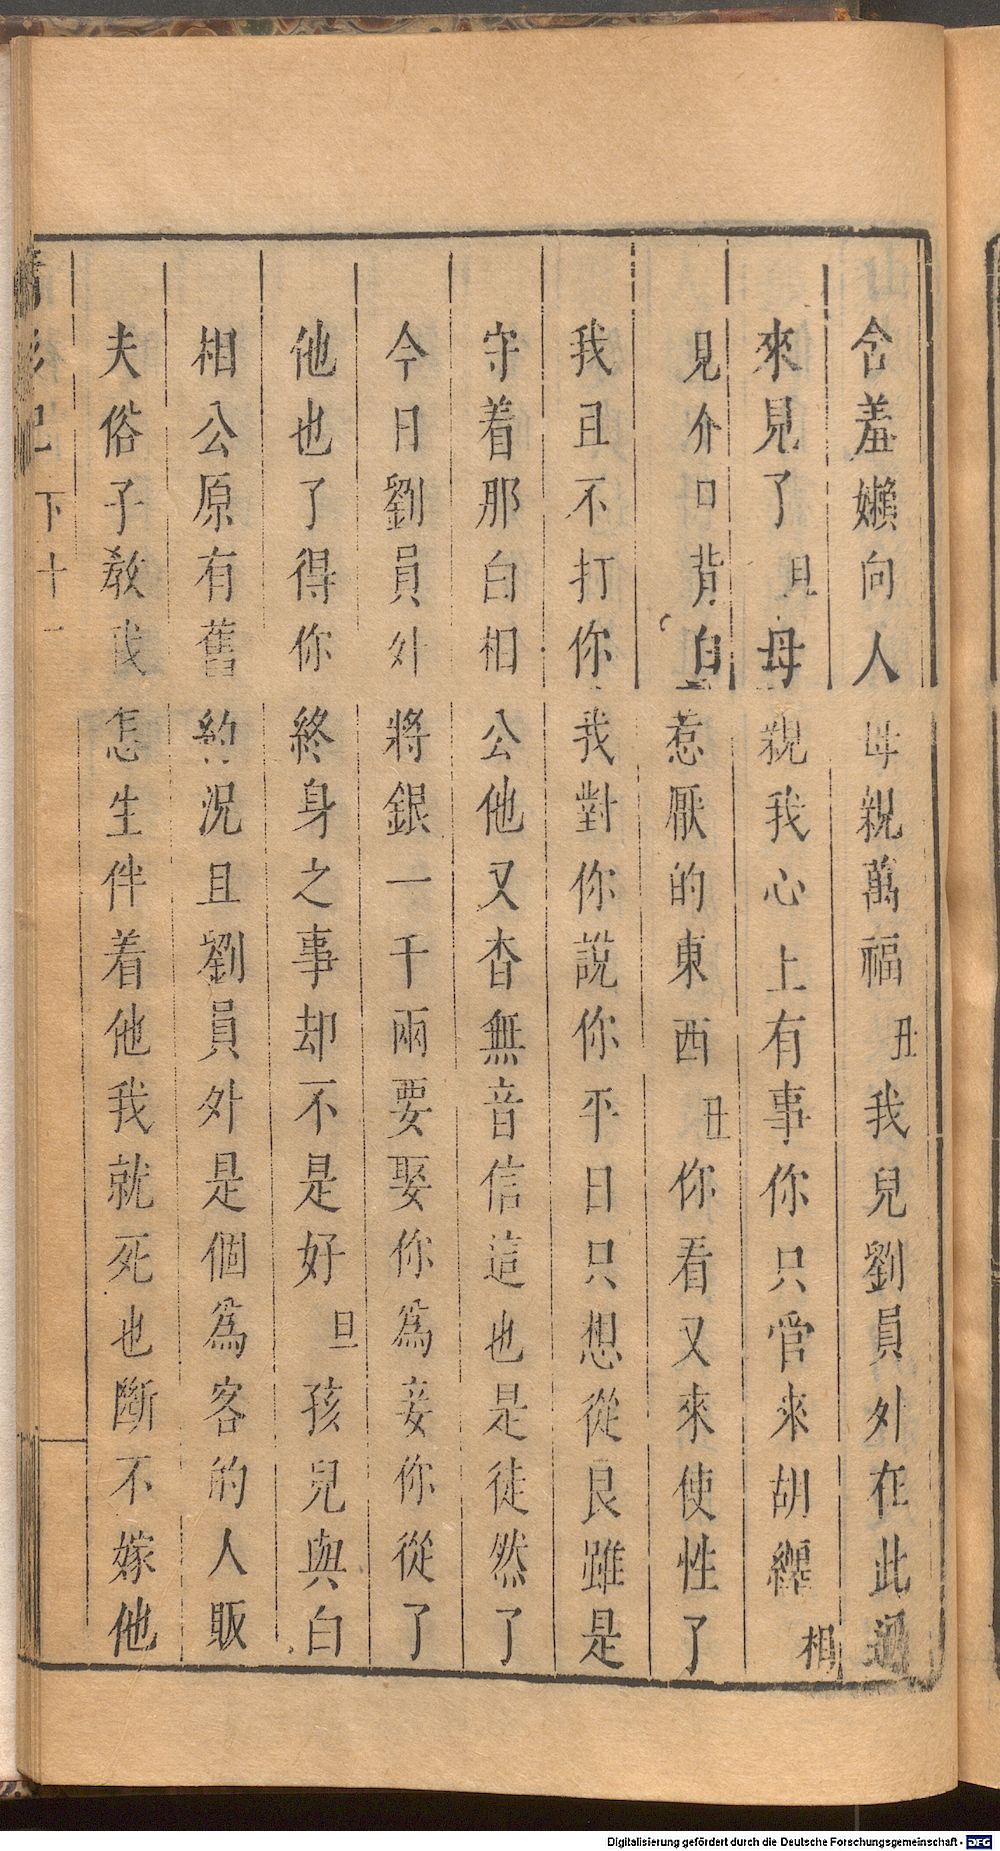 含羞嬾向人母親萬福丑我兒劉員外在此過
來見了旦母親我心上有事你只管來胡纏相
見介背白惹厭的東西丑你看又來使性了
我且不打你我對你說你平日只想從良雖是
守着那白相公他又杳無音信這也是徒然了
今日劉員外將銀一千兩要娶你爲妾你從了
他也了得你終身之事却不是好旦孩兒與白
相公原有舊約況且劉員外是個爲客的人販
夫俗子教我怎生伴着他我就死也斷不嫁他
衫記 下 十一
Digitalisierung gefördert durch die Deutsche Forschungsgemeinschaft - DFG